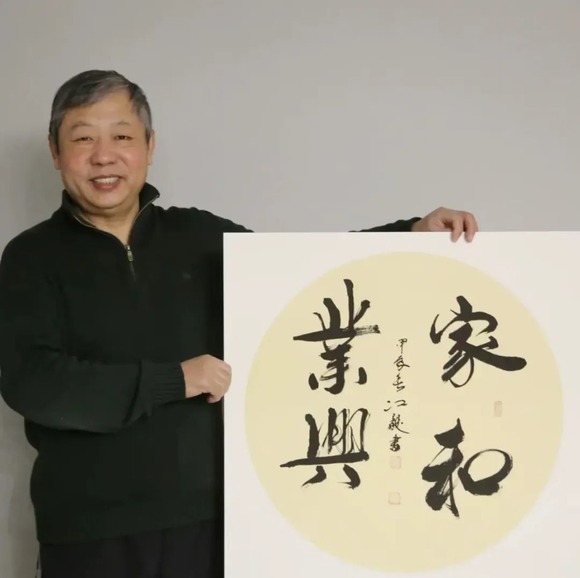 家和
業興
甲辰冬江龍書